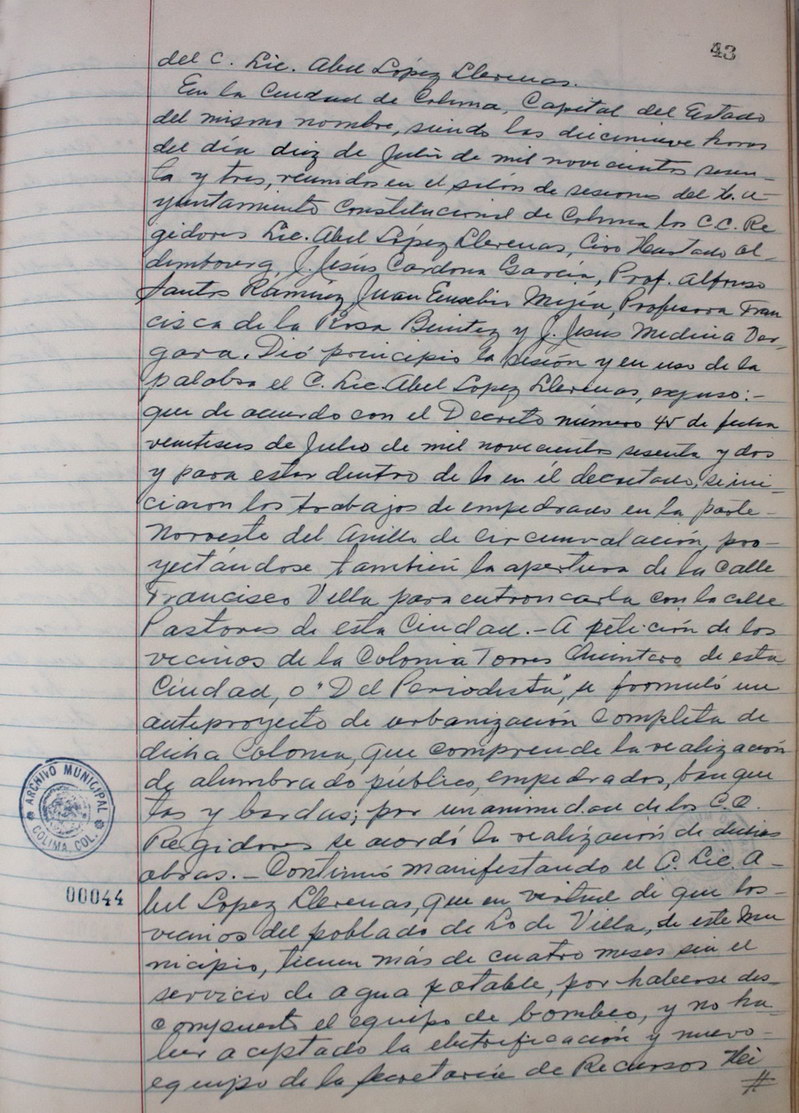 43
del C. Lic. Abel López Llerenas.
En la Ciudad de Colima, Capital del Estado
del mismo nombre, siendo las diecinueve horas
del día diez de Julio de mil novecientos sesen-
ta y tres, reunidos en el salón de sesiones del H. A-
yuntamiento Constitucional de Colima los C.C. Re
gidores Lic. Abel López Llerenas, Ciro Hurtado Al-
dembourg, J. Jesús Cardona García, Prof. Alfonso
Santos Ramírez, Juan Eusebio Mejía, Profesora Fran
cisca de la Rosa Benitez y J. Jesús Medina Ver-
gara. Dió principio la sesión y en uso de la
palabra el C. Lic. Abel Lopez Llerenas, expuso:-
que de acuerdo con el Decreto número 45 de fecha
veintiseis de Julio de mil novecientos sesenta y dos
y para estar dentro de lo en él decretado, se ini-
ciaron los trabajos de empedrado en la parte-
Noroeste del Anillo de circunvalación, pro-
yectándose también la apertura de la Calle
Francisco Villa para entroncarla con la calle
Pastores de esta Ciudad.- A petición de los
vecinos de la Colonia Torres Quintero de esta
Ciudad, o "Del Periodista", se formuló un
anteproyecto de urbanización completa de
dicha Colonia, que comprende la realización
de alumbrado público, empedrados, banque
tas y bardas; por unanimidad de los C.C.
Regidores se acordó la realización de dichas
obras.- Continuó manifestando el C. Lic. A-
bel Lopez Llerenas, que en virtud de que los-
vecinos del poblado de Lo de Villa, de este Mu
nicipio, tienen más de cuatro meses sin el
servicio de agua potable, por haberse des-
compuesto el equipo de bombeo, y no ha-
ber aceptado la electrificación y nuevo-
equipo de la Secretaría de Recursos Hi
#
ARCHIVO MUNICIPAL
COLIMA, COL.
00044